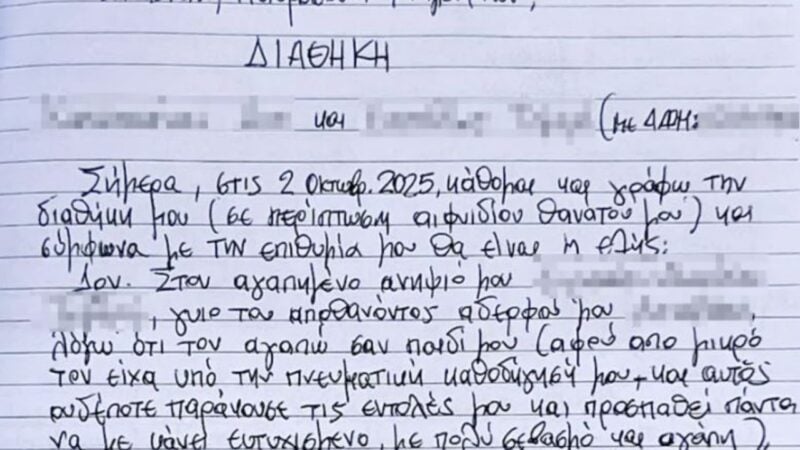 ΔΙΑΘΗΚΗ
και (με ΑΦΜ:
Σήμερα, στις 2 Οκτωβρ. 2025, κάθομαι και γράφω την
διαθήκη μου (σε περίπτωση αιφνιδίου θανάτου μου) και
σύμφωνα με την επιθυμία μου θα είναι η εξής:
1ον. Στον αγαπημένο ανηψιό μου
, γυιο του αποθανόντος αδερφού μου
λόγω ότι τον αγαπώ σαν παιδί μου (αφού από μικρό
τον είχα υπό την πνευματική καθοδήγησή μου, και αυτός
ουδέποτε παράκουσε τις εντολές μου και προσπαθεί πάντα
να με κάνει ευτυχισμένο, με πολύ σεβασμό και αγάπη),